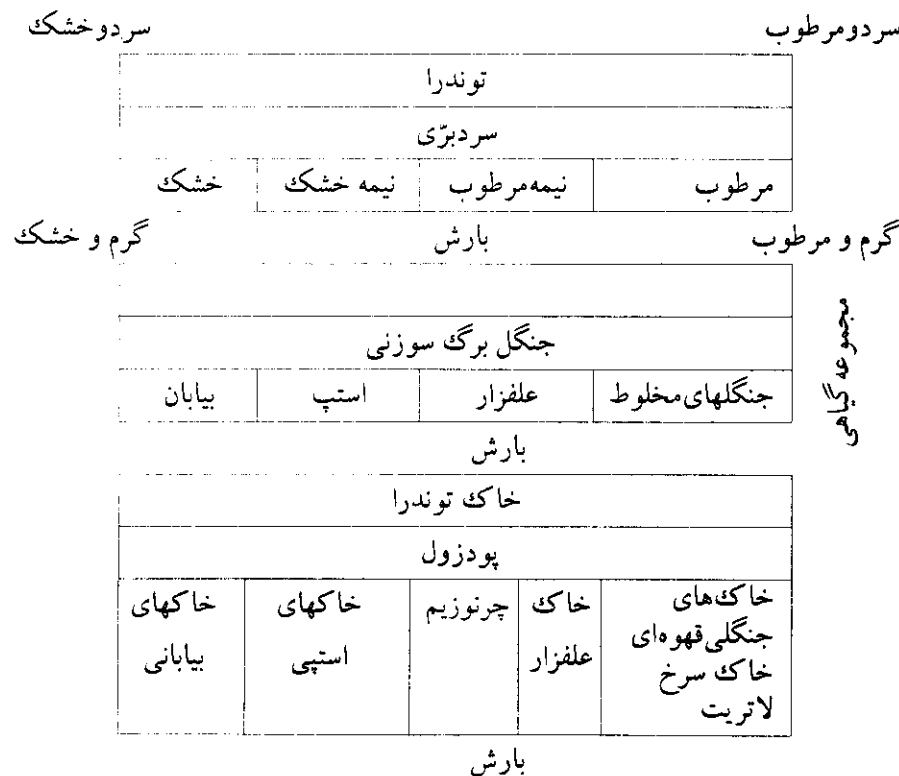 سردومرطوب سردوخشک
توندرا
سردبرّی
مرطوب نیمه‌مرطوب نیمه خشک خشک
گرم و مرطوب بارش گرم و خشک
مجموعه گیاهی
جنگل برگ سوزنی
جنگلهای‌مخلوط علفزار استپ بیابان
بارش
خاک توندرا
پودزول
خاک‌های
جنگلی‌قهوه‌ای
خاک سرخ
لاتریت
خاک
علفزار
چرنوزیم
خاکهای
استپی
خاکهای
بیابانی
بارش